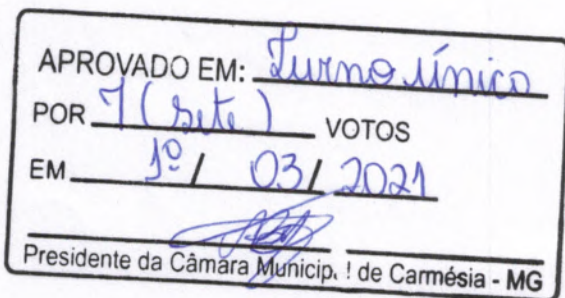 APROVADO EM: Turno único
POR 7 (sete) VOTOS
EM 1º / 03 / 2021
Presidente da Câmara Municip. ! de Carmésia - MG